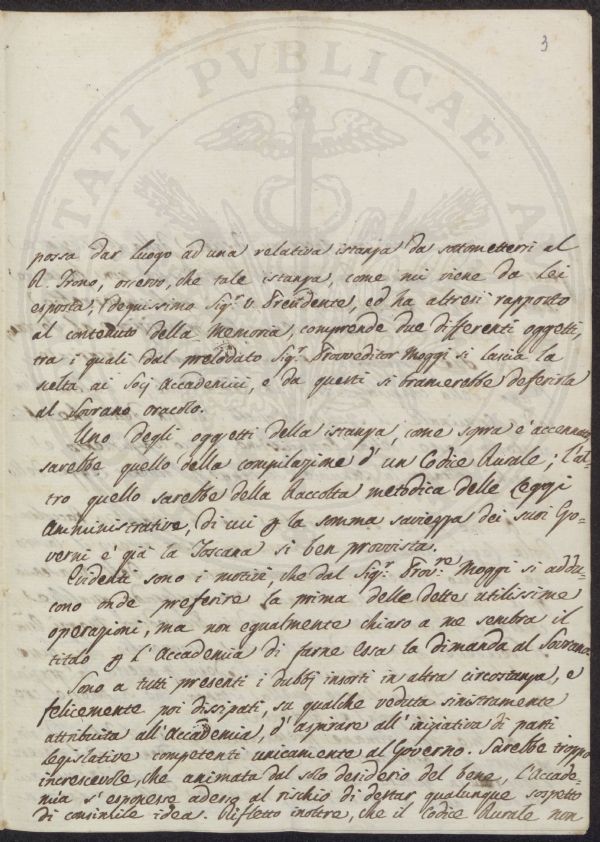 3
possa dar luogo ad una relativa istanza da sottomettersi al
R. Trono, osservo, che tale istanza, come mi viene da Lei
esposta, degnissimo Sig.r V. Presidente, ed ha altresì rapporto
al contenuto della Memoria, comprende due differenti oggetti,
tra i quali dal prelodato Sig.r Provveditor Moggi si lascia la
scelta ai Socj Accademici, e da questi si bramerebbe deferirla
al Sovrano oracolo.
Uno degli oggetti della istanza, come sopra è accennato
sarebbe quello della compilazione d'un Codice Rurale; l'al-
tro quello sarebbe della Raccolta metodica delle Leggi
Amministrative, di cui p la somma saviezza dei suoi Go-
verni è già la Toscana si ben provvista.
Evidenti sono i motivi, che dal Sig.r Prov.re Moggi si addu-
cono onde preferire la prima delle dette utilissime
operazioni, ma non egualmente chiaro a me sembra il
titolo p l'Accademia di farne essa la dimanda al Sovrano.
Sono a tutti presenti i dubbj insorti in altra circostanza, e
felicemente poi dissipati, su qualche veduta sinistramente
attribuita all'Accademia, d'aspirare all'iniziativa di parti
legislative competenti unicamente al Governo. Sarebbe troppo
increscevole, che animata dal solo desiderio del bene, l'Accade-
mia s'esponesse adesso al rischio di destar qualunque sospetto
di consimile idea. Rifletto inoltre, che il Codice Rurale non
TATI PVBLICAE